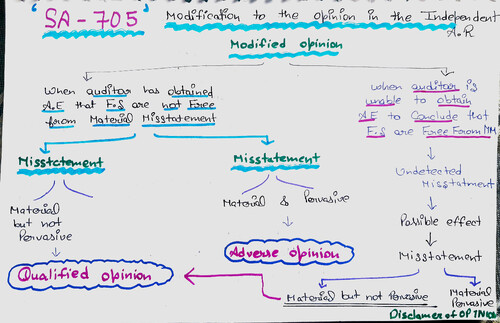 SA-705
Modification to the opinion in the Independent
A.R
Modified opinion
When auditor has obtained
A.E that F.S are not Free
from Material Misstatement
When auditor is
unable to obtain
AE to Conclude that
F.S are Free From MM
Misstatement
Misstatement
Undetected
Misstatment
Material
but not
Pervasive
Material & Pervasive
Possible effect
Misstatement
Qualified opinion
Adverse opinion
Material but not Pervasive
Material
Pervasive
Disclamer of OPINION